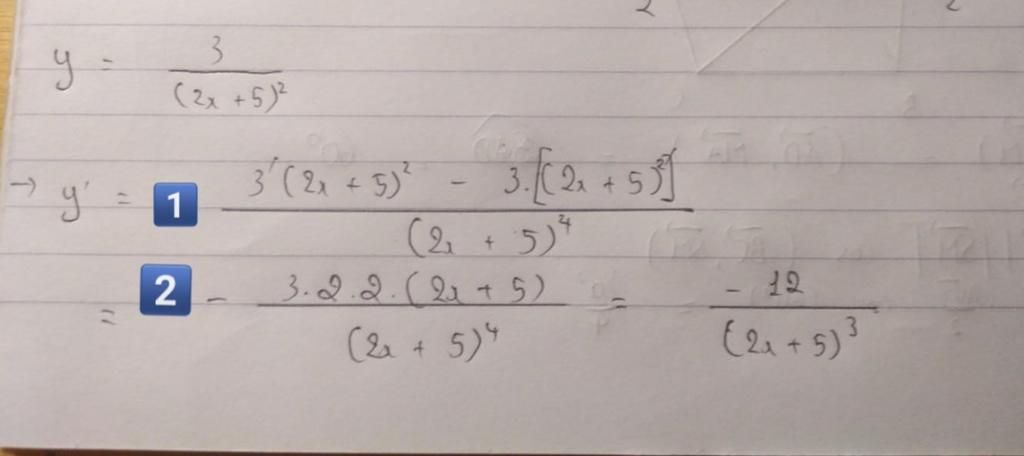 y = 3/(2x + 5)²
→ y' = 1 (3'(2x + 5)² - 3.[(2x + 5)²]')/(2x + 5)⁴
= 2 - (3.2.2.(2x + 5))/(2x + 5)⁴ = -12/(2x + 5)³